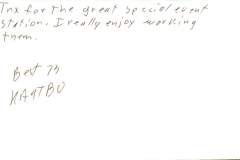 Tnx for the great special event
station. I really enjoy working
them.
Best 73
KA4TBO